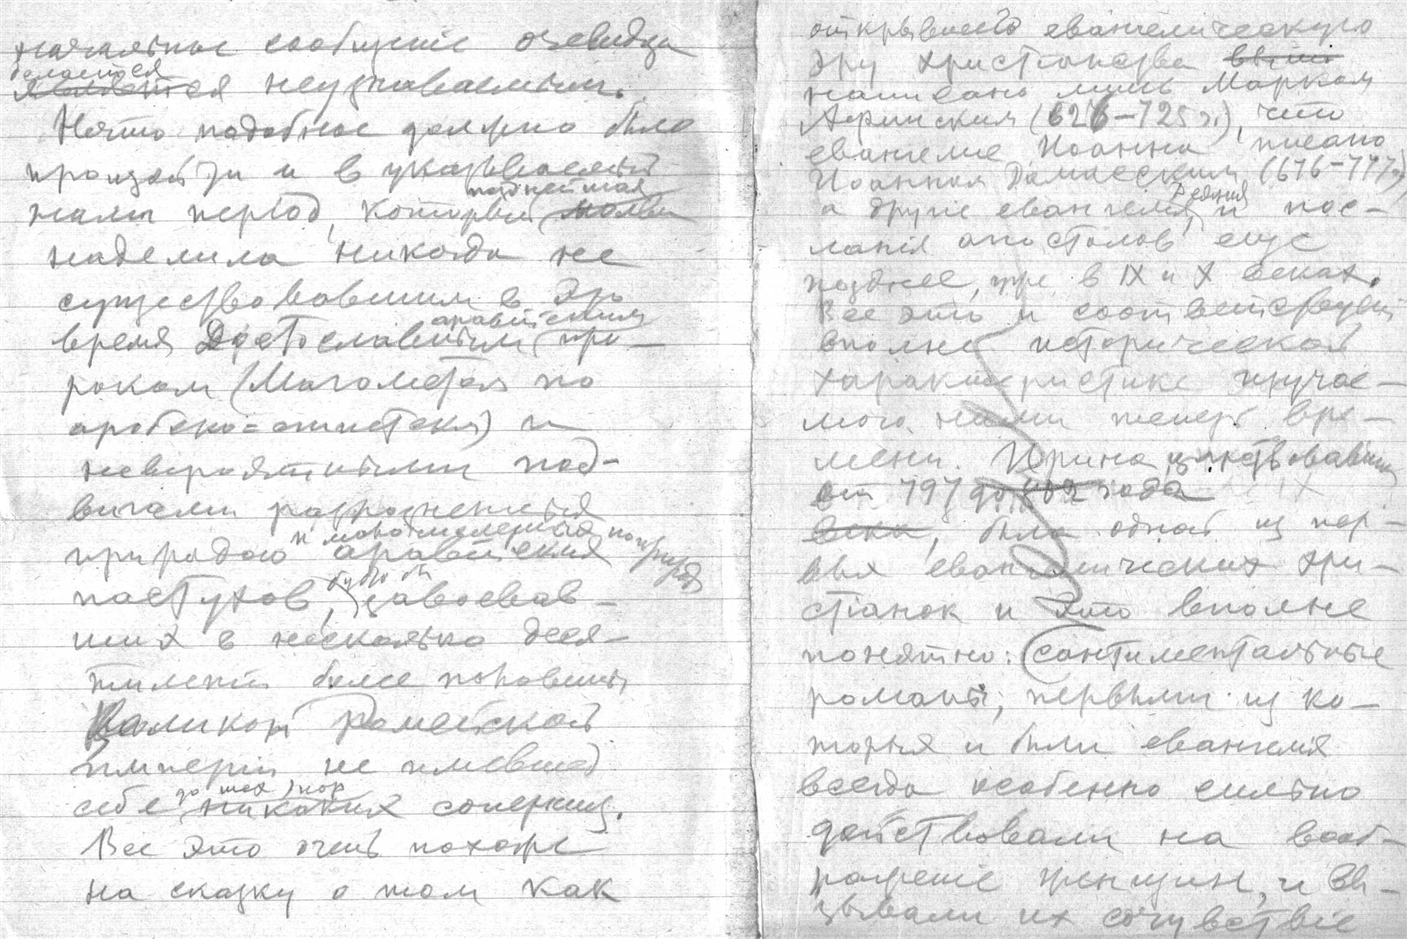 начальное сообщение очевидца
делается
является неузнаваемым.
Нечто подобное должно было
произойти и в указываемый
позднейшая
нами период, который молва
наделила никогда не
существовавшим в это
аравийским
время Достославным про-
роком (Магометом по
арабско-египетски) и
невероятными под-
вигами
и малочисленных по природе
природою аравийских
будто бы
пастухов, завоевав-
ших в несколько деся-
тилетий более половины
Великой Ромейской
империи, не имевшей
до тех пор
себе никаких соперниц.
Все это очень похоже
на сказку о том как
открывшего евангелическую
эру христианства было
написано лишь Марком
Афинским (626–725 г.), что
евангелие Иоанна писано
Иоанном Дамасским (676–777)
Деяния
а другие евангелия, и пос-
лания апостолов еще
позднее, уже в IX и X веках.
Все это и соответствует
вполне исторической
характеристике изучае-
мого нами теперь вре-
мени. Ирина, царствовавшая
от 797 до 802 года
века, была одной из пер-
вых евангелических хри-
стианок и это вполне
понятно: сантиментальные
романы, первыми из ко-
торых и были евангелия
всегда особенно сильно
действовали на вооб-
ражение женщин, и вы-
зывали их сочувствие